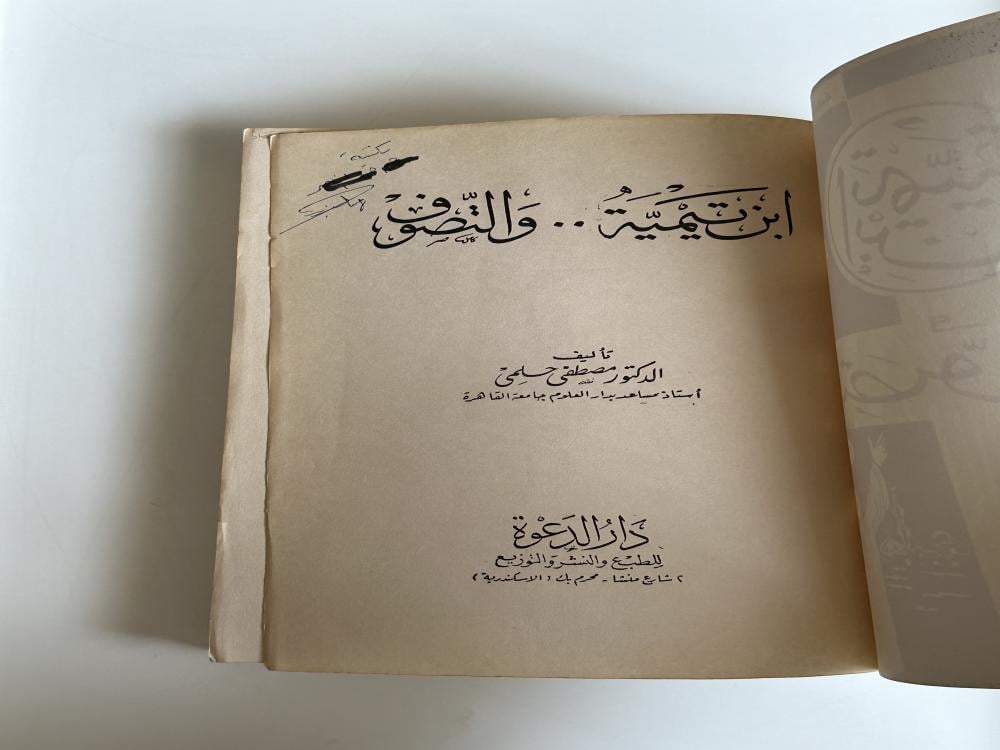 ابن تيميَّةَ .. وَالتّصوّف
تأليف
الدكتور مصطفى حلمى
أستاذ مساعد بدار العلوم جامعة القاهرة
دَارُ الدَعْوة
للطبع والنشر والتوزيع
٢ شارع منشا - محرم بك (الاسكندرية)
مكتبة